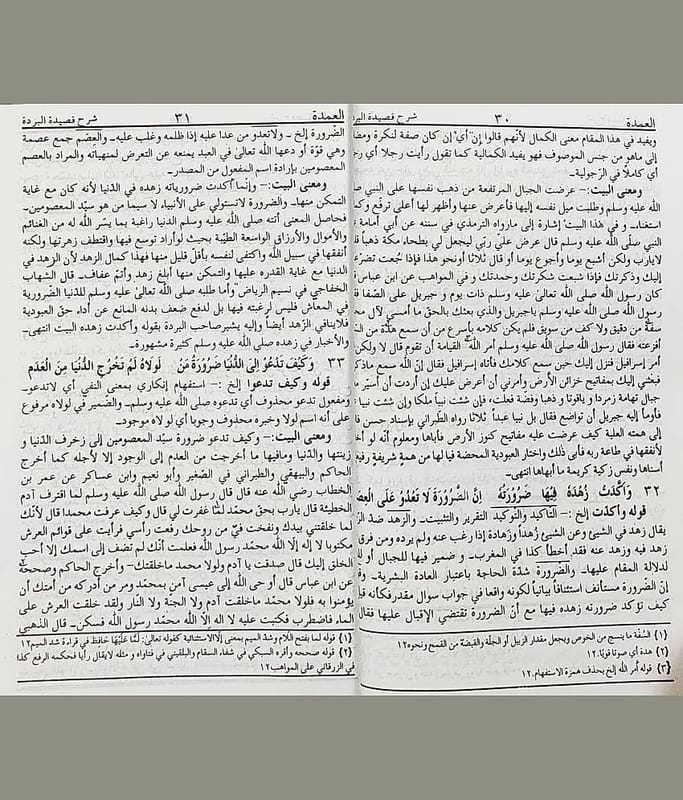 العمدة ٣٠ شرح قصيدة البر
ويفيد في هذا المقام معنى الكمال لأنهم قالوا إن "أي" إن كان صفة لنكرة ومضا
إلى ماهو من جنس الموصوف فهو يفيد الكمالية كما تقول رأيت رجلا أي ر
أي كاملًا في الرّجولية۔
ومعنى البيت:– عرضت الجبال المرتفعة من ذهب نفسها على النبي ص
الله عليه وسلم وطلبت ميل نفسه إليها فأعرض عنها وأظهر لها أعلى ترفّع وكم
استغناء۔ و في هذا البيت إشارة إلى مارواه الترمذي في سننه عن أبي أمامة
النبي صلّى الله عليه وسلم قال عرض عليّ ربّي ليجعل لي بطحاء مكة ذهبا ق
لايارب ولكن أشبع يوما وأجوع يوما أو قال ثلاثا أونحو هذا فإذا جُعت تضرّع
إليك وذكرتك فإذا شبعت شكرتك وحمدتك و في المواهب عن ابن عباس
كان رسول الله صلى الله تعالى عليه وسلم ذات يوم و جبريل على الصّفا فق
رسول الله صلى الله عليه وسلم ياجبريل والذي بعثك بالحق ما أمسي لآل مح
سفّة من دقيق ولا كف من سويق فلم يكن كلامه بأسرع من أن سمع هدّة من ال
أفزعته فقال رسول الله صلى الله عليه وسلم أمر الله القيامة أن تقوم قال لا ولكن
أمر إسرافيل فنزل إليك حين سمع كلامك فأتاه إسرافيل فقال إنّ الله سمع ماذك
فبعثني إليك بمفاتيح خزائن الأرض وأمرني أن أعرض عليك إن أردت أن أسيّر م
جبال تهامة زمردا و ياقوتا و ذهبا وفضة فعلت، فإن شئت نبياً ملكا وإن شئت نبيا
فأومأ إليه جبريل أن تواضع فقال بل نبيا عبداً ثلاثا رواه الطبراني بإسناد حسن ف
إلى همته العلية كيف عرضت عليه مفاتيح كنوز الأرض فأباها ومعلوم أنّه لو أخ
لأنفقها في طاعة ربه فأبى ذلك واختار العبودية المحضة فيا لها من همة شريفة رفيع
أسناها ونفس زكية كريمة ما أبهاها انتهى۔
٣٢ وَأَكَّدَتْ زُهْدَهُ فِيْهَا ضَرُوْرَتُهُ إِنَّ الضَّرُوْرَةَ لَا تَعْدُوْ عَلَى الْعِصَ
قوله وأكدت إلخ :– التأكيد والتوكيد التقرير والتثبيت۔ والزهد ضدّ الر
يقال زهد في الشيئ وعن الشيئ زُهداً وزَهادة إذا رغب عنه ولم يرده ومن فرق
زهد فيه وزهد عنه فقد أخطأ كذا في المغرب۔ و ضمير فيها للجبال أو لل
لدلالة المقام عليها۔ والضّرورة شدّة الحاجة باعتبار العادة البشرية۔ وق
إنّ الضرورة مستأنف استئنافاً بيانياً لكونه واقعا في جواب سوال مقدر فكأنه قي
كيف تؤكد ضرورته زهده فيها مع أنّ الضرورة تقتضي الإقبال عليها فقال
(١) السُّفّة ما ينسج من الخوص ويجعل مقدار الزبيل أو الجلّة والقبضة من القمح ونحوه١٢
(٢) هدة أي صوتا قويًا.١٢
(٣) قوله أمر الله إلخ بحذف همزة الاستفهام.١٢
العمدة ٣١ شرح قصيدة البردة
الضرورة إلخ ۔ ولاتعدو من عدا عليه إذا ظلمه وغلب عليه۔ والعِصَم جمع عصمة
وهي قوّة أو دعها الله تعالى في العبد يمنعه عن التعرض لمنهياته والمراد بالعصم
المعصومين بإرادة اسم المفعول من المصدر۔
ومعنى البيت:– وإنّما أكدت ضرورياته زهده في الدّنيا لأنه كان مع غاية
التمكن منها۔ والضرورة لاتستولي على الأنبياء لا سيما من هو سيّد المعصومين۔
فحاصل المعنى أتته صلى الله عليه وسلم الدنيا راغبة بما يسّر الله له من الغنائم
والأموال والأرزاق الواسعة الطيّبة بحيث لو أراد توسع فيها واقتطف زهرتها ولكنه
أنفقها في سبيل الله واكتفى لنفسه بأقلّ قليل منها فهذا كمال الزهد لأن الزهد في
الدنيا مع غاية القدره عليها والتمكن منها أبلغ زهد وأتمّ عفاف۔ قال الشهاب
الخفاجي في نسيم الرياض "وأما طلبه صلى الله تعالى عليه وسلم للدّنيا الضرورية
في المعاش فليس لرغبته فيها بل لدفع ضعف بدنه المانع عن أداء حقّ العبودية
فلاينافي الزّهد أيضاً وإليه يشيرصاحب البردة بقوله وأكدت زهده البيت انتهى۔
والأخبار في زهده صلى الله عليه وسلم كثيرة مشهورة۔
٣٣ وَكَيْفَ تَدْعُوْ إِلَى الدُّنْيَا ضَرُوْرَةُ مَنْ لَوْلَاهُ لَمْ تُخْرَجِ الدُّنْيَا مِنَ الْعَدَمِ
قوله وكيف تدعوا إلخ :– استفهام إنكاري بمعنى النفي أي لاتدعو۔
ومفعول تدعو محذوف أي تدعوه صلى الله عليه وسلم۔ والضّمير في لولاه مرفوع
على أنه اسم لولا وخبره محذوف وجوبا أي لو لاه موجود۔
ومعنى البيت:– وكيف تدعو ضرورة سيّد المعصومين إلى زخرف الدّنيا و
زينتها والدّنيا ومافيها ما أخرجت من العدم إلى الوجود إلا لأجله كما أخرج
الحاكم والبيهقي والطبراني في الصّغير وأبو نعيم وابن عساكر عن عمر بن
الخطاب رضي الله عنه قال قال رسول الله صلى الله عليه وسلم لما اقترف آدم
الخطيئة قال يارب بحق محمّد لمّا غفرت لي قال وكيف عرفت محمدا قال لأنّك
لما خلقتني بيدك ونفخت فيّ من روحك رفعت رأسي فرأيت على قوائم العرش
مكتوبا لا إله إلّا الله محمّد رسول الله فعلمت أنّك لم تضف إلى اسمك إلا أحب
الخلق إليك قال صدقت يا آدم ولولا محمد ماخلقتك۔ وأخرج الحاكم وصححه
عن ابن عباس قال أو حى الله إلى عيسى آمن بمحمّد ومر من أدركه من أمتك أن
يؤمنوا به فلولا محمّد ماخلقت آدم ولا الجنة ولا النار ولقد خلقت العرش على
الماء فاضطرب فكتبت عليه لا اله إلّا الله محمّد رسول الله فسكن۔ قال الذهبي
(١) قوله لما بفتح اللام وشد الميم بمعنى إلّاالاستثنائية كقوله تعالى: لَمَّا عَلَيْهَا حَافِظٌ في قراءة شد الميم١٢
(٢) قوله صححه وأقره السبكي في شفاء السقام والبلقيني في فتاواه و مثله لايقال رأيا فحكمه الرفع كذا
في الزرقاني على المواهب١٢